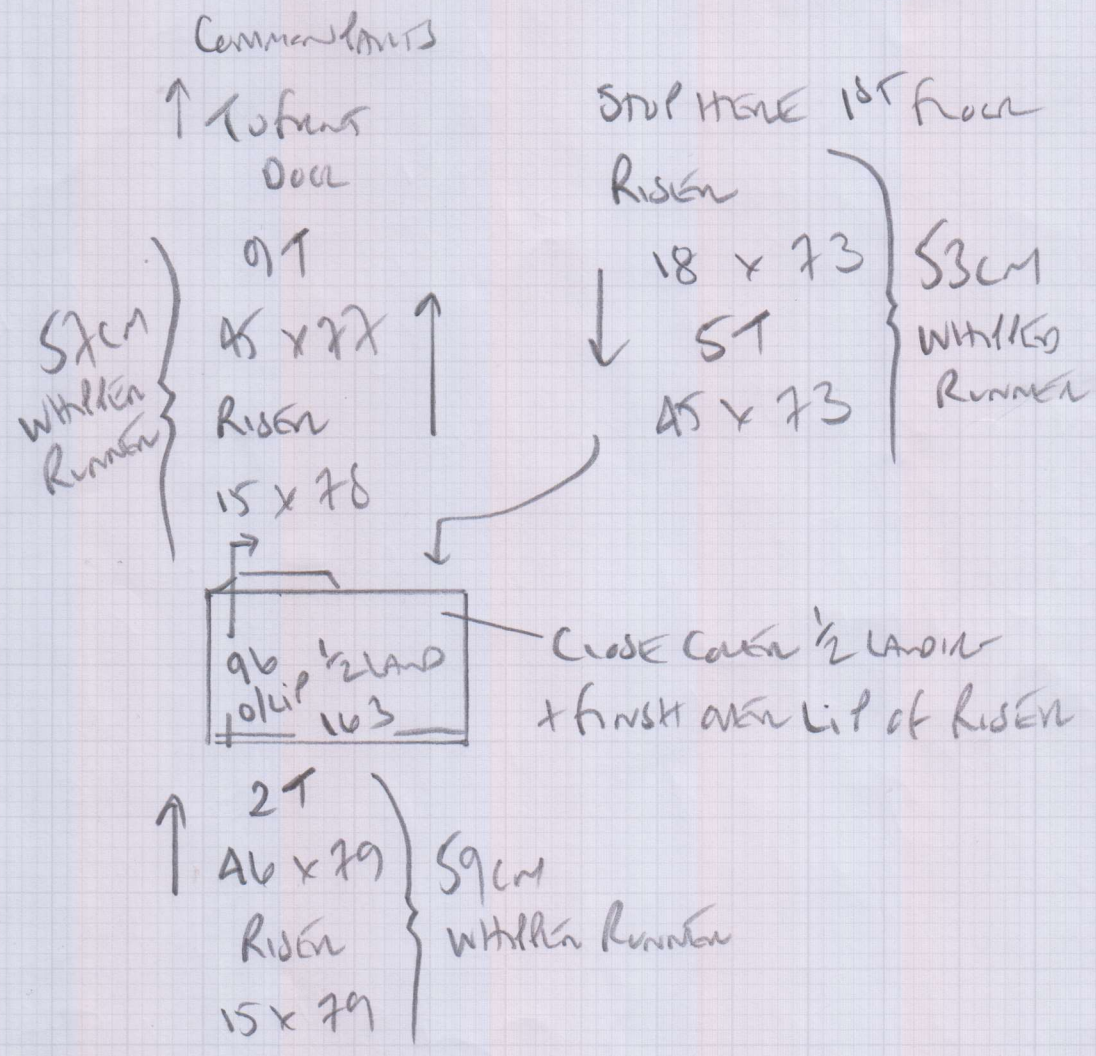 COMMON PARTS
↑ TO FRONT
DOOR
9T
45 x 77
RISER
15 x 78
57CM
WHIPPED
RUNNER
STOP HERE 1ST FLOOR
RISER
18 x 73
5T
45 x 73
53CM
WHIPPED
RUNNER
96
O/LIP 1/2 LAND
163
CLOSE COVER 1/2 LANDING
+ FINISH OVER LIP OF RISER
2T
46 x 79
RISER
15 x 79
59CM
WHIPPED RUNNER